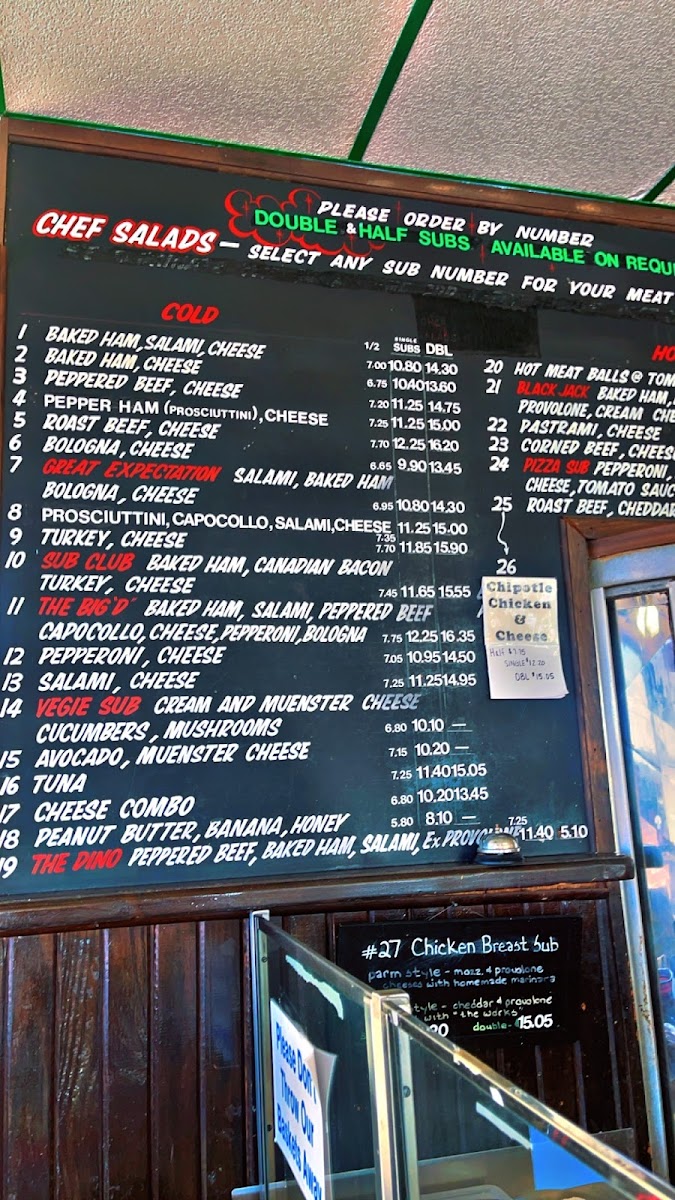 PLEASE ORDER BY NUMBER
DOUBLE & HALF SUBS AVAILABLE ON
CHEF SALADS — SELECT ANY SUB NUMBER FOR YOUR MEAT
COLD
1/2 SINGLE SUBS DBL
1 BAKED HAM, SALAMI, CHEESE 7.00 10.80 14.30
2 BAKED HAM, CHEESE 6.75 10.40 13.60
3 PEPPERED BEEF, CHEESE 7.20 11.25 14.75
4 PEPPER HAM (PROSCIUTTINI), CHEESE 7.25 11.25 15.00
5 ROAST BEEF, CHEESE 7.70 12.25 16.20
6 BOLOGNA, CHEESE 6.65 9.90 13.45
7 GREAT EXPECTATION SALAMI, BAKED HAM
BOLOGNA, CHEESE 6.95 10.80 14.30
8 PROSCIUTTINI, CAPOCOLLO, SALAMI, CHEESE 7.35 11.25 15.00
9 TURKEY, CHEESE 7.70 11.85 15.90
10 SUB CLUB BAKED HAM, CANADIAN BACON
TURKEY, CHEESE 7.45 11.65 15.55
11 THE BIG "D" BAKED HAM, SALAMI, PEPPERED BEEF
CAPOCOLLO, CHEESE, PEPPERONI, BOLOGNA 7.75 12.25 16.35
12 PEPPERONI, CHEESE 7.05 10.95 14.50
13 SALAMI, CHEESE 7.25 11.25 14.95
14 VEGIE SUB CREAM AND MUENSTER CHEESE
CUCUMBERS, MUSHROOMS 6.80 10.10 —
15 AVOCADO, MUENSTER CHEESE 7.15 10.20 —
16 TUNA 7.25 11.40 15.05
17 CHEESE COMBO 6.80 10.20 13.45
18 PEANUT BUTTER, BANANA, HONEY 5.80 8.10 —
19 THE DINO PEPPERED BEEF, BAKED HAM, SALAMI, Ex PROVOLONE 7.25 11.40 5.10
20 HOT MEAT BALLS @
21 BLACK JACK BAKED HAM,
PROVOLONE, CREAM
22 PASTRAMI, CHEESE
23 CORNED BEEF,
24 PIZZA SUB PEPPERONI,
CHEESE, TOMATO
25 ROAST BEEF,
26
Chipotle
Chicken
&
Cheese
Half $7.75
SINGLE $12.20
DBL $15.05
#27 Chicken Breast Sub
parm style - mozz. & provolone
cheeses with homemade marinara
- cheddar & provolone
with "the works"
double- 15.05
Please Don't
Throw Our
Baskets Away